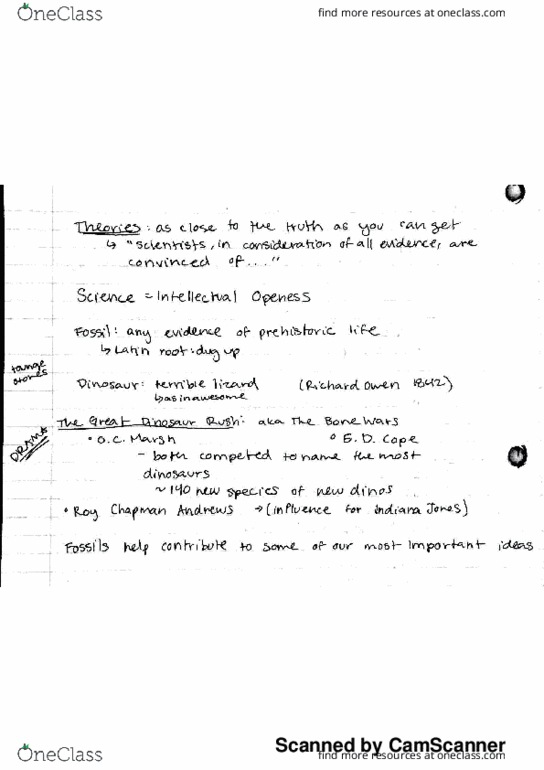 OneClass
find more resources at oneclass.com
Theories: as close to the truth as you can get
↳ "scientists, in consideration of all evidence, are
convinced of..."
Science = Intellectual Openess
Fossil: any evidence of prehistoric life
↳ Latin root: dug up
tounge
stones
Dinosaur: terrible lizard (Richard Owen 1842)
↳ as in awesome
The Great Dinosaur Rush: aka The Bone Wars
DRAMA
• O.C. Marsh • E. D. Cope
- both competed to name the most
dinosaurs
~ 140 new species of new dinos
• Roy Chapman Andrews → (influence for Indiana Jones)
Fossils help contribute to some of our most important ideas
Scanned by CamScanner
OneClass
find more resources at oneclass.com